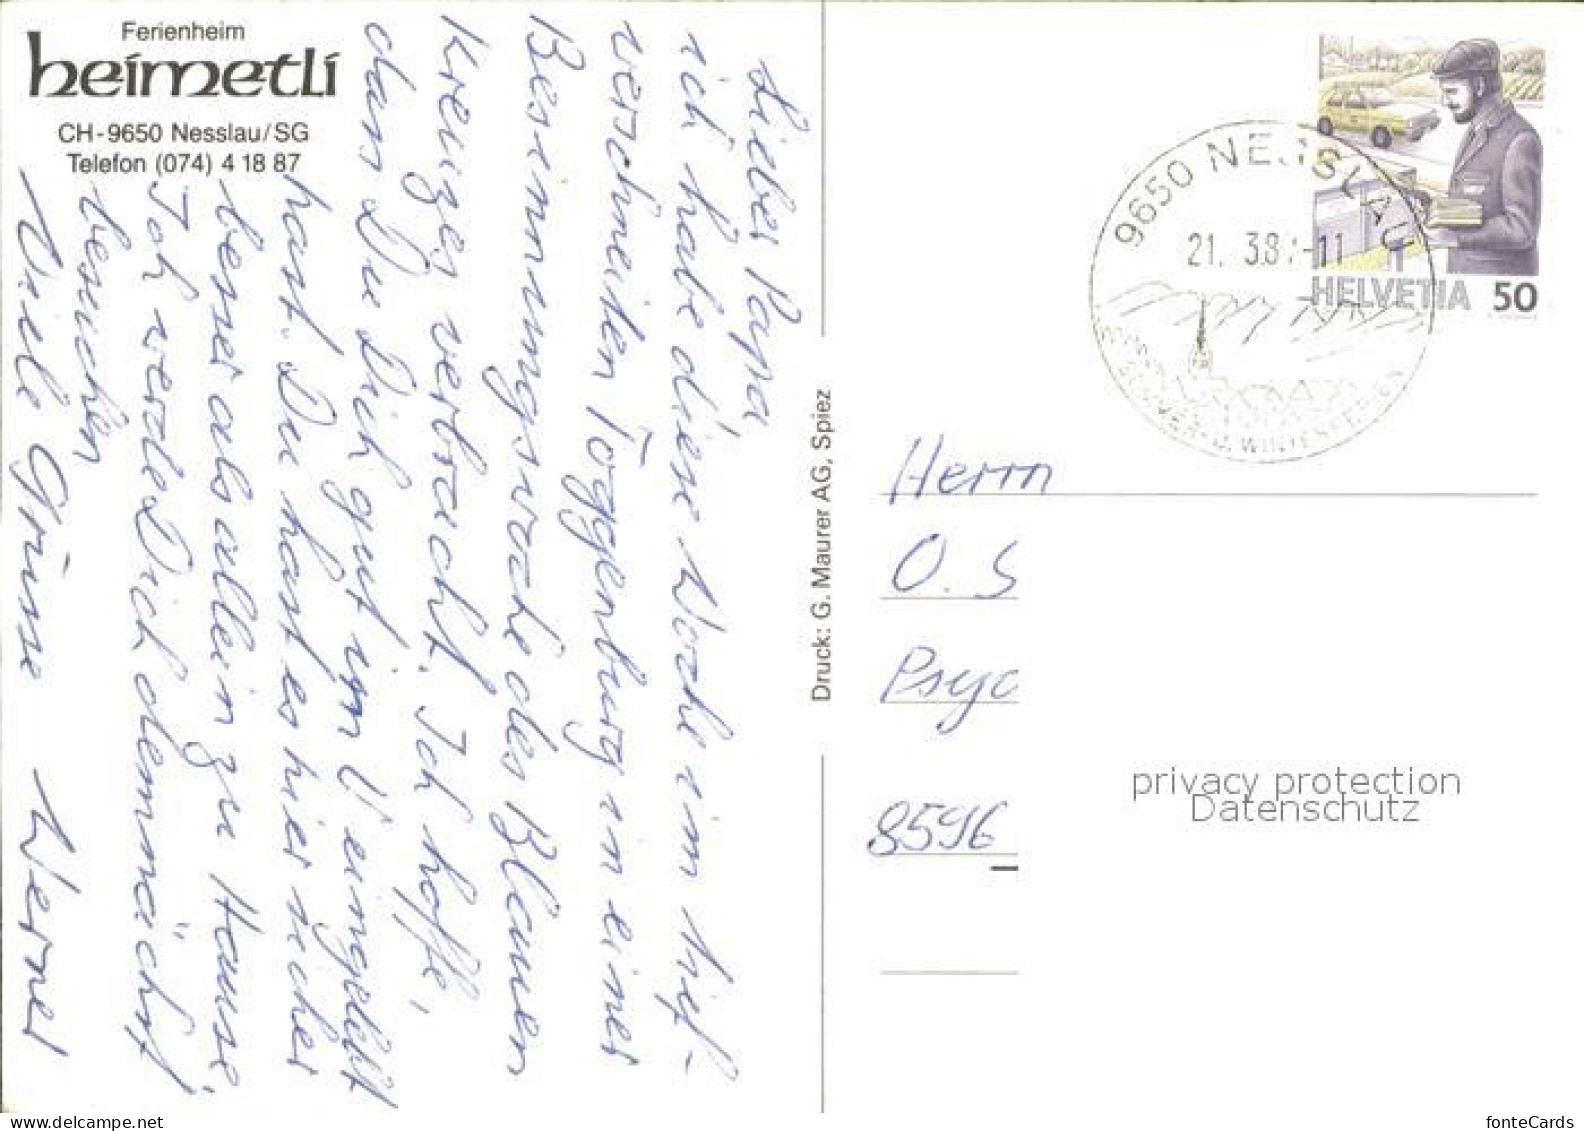 Ferienheim
heimetli
CH-9650 Nesslau/SG
Telefon (074) 4 18 87
Lieber Papa,
ich habe diese Woche im tief-
verschneiten Toggenburg in einer
Besinnungswoche des Blauen
Kreuzes verbracht. Ich hoffe,
dass Du Dich gut im V eingelebt
hast. Du hast es hier sicher
besser als allein zu Hause.
Ich werde Dich demnächst
besuchen
Viele Grüsse Werner
Druck: G. Maurer AG, Spiez
9650 NESSLAU
21. 3.8 -11
SOMMER- U. WINTERFERIEN
HELVETIA 50
Herrn
O. S
Psyc
8596
privacy protection
Datenschutz
fonteCards